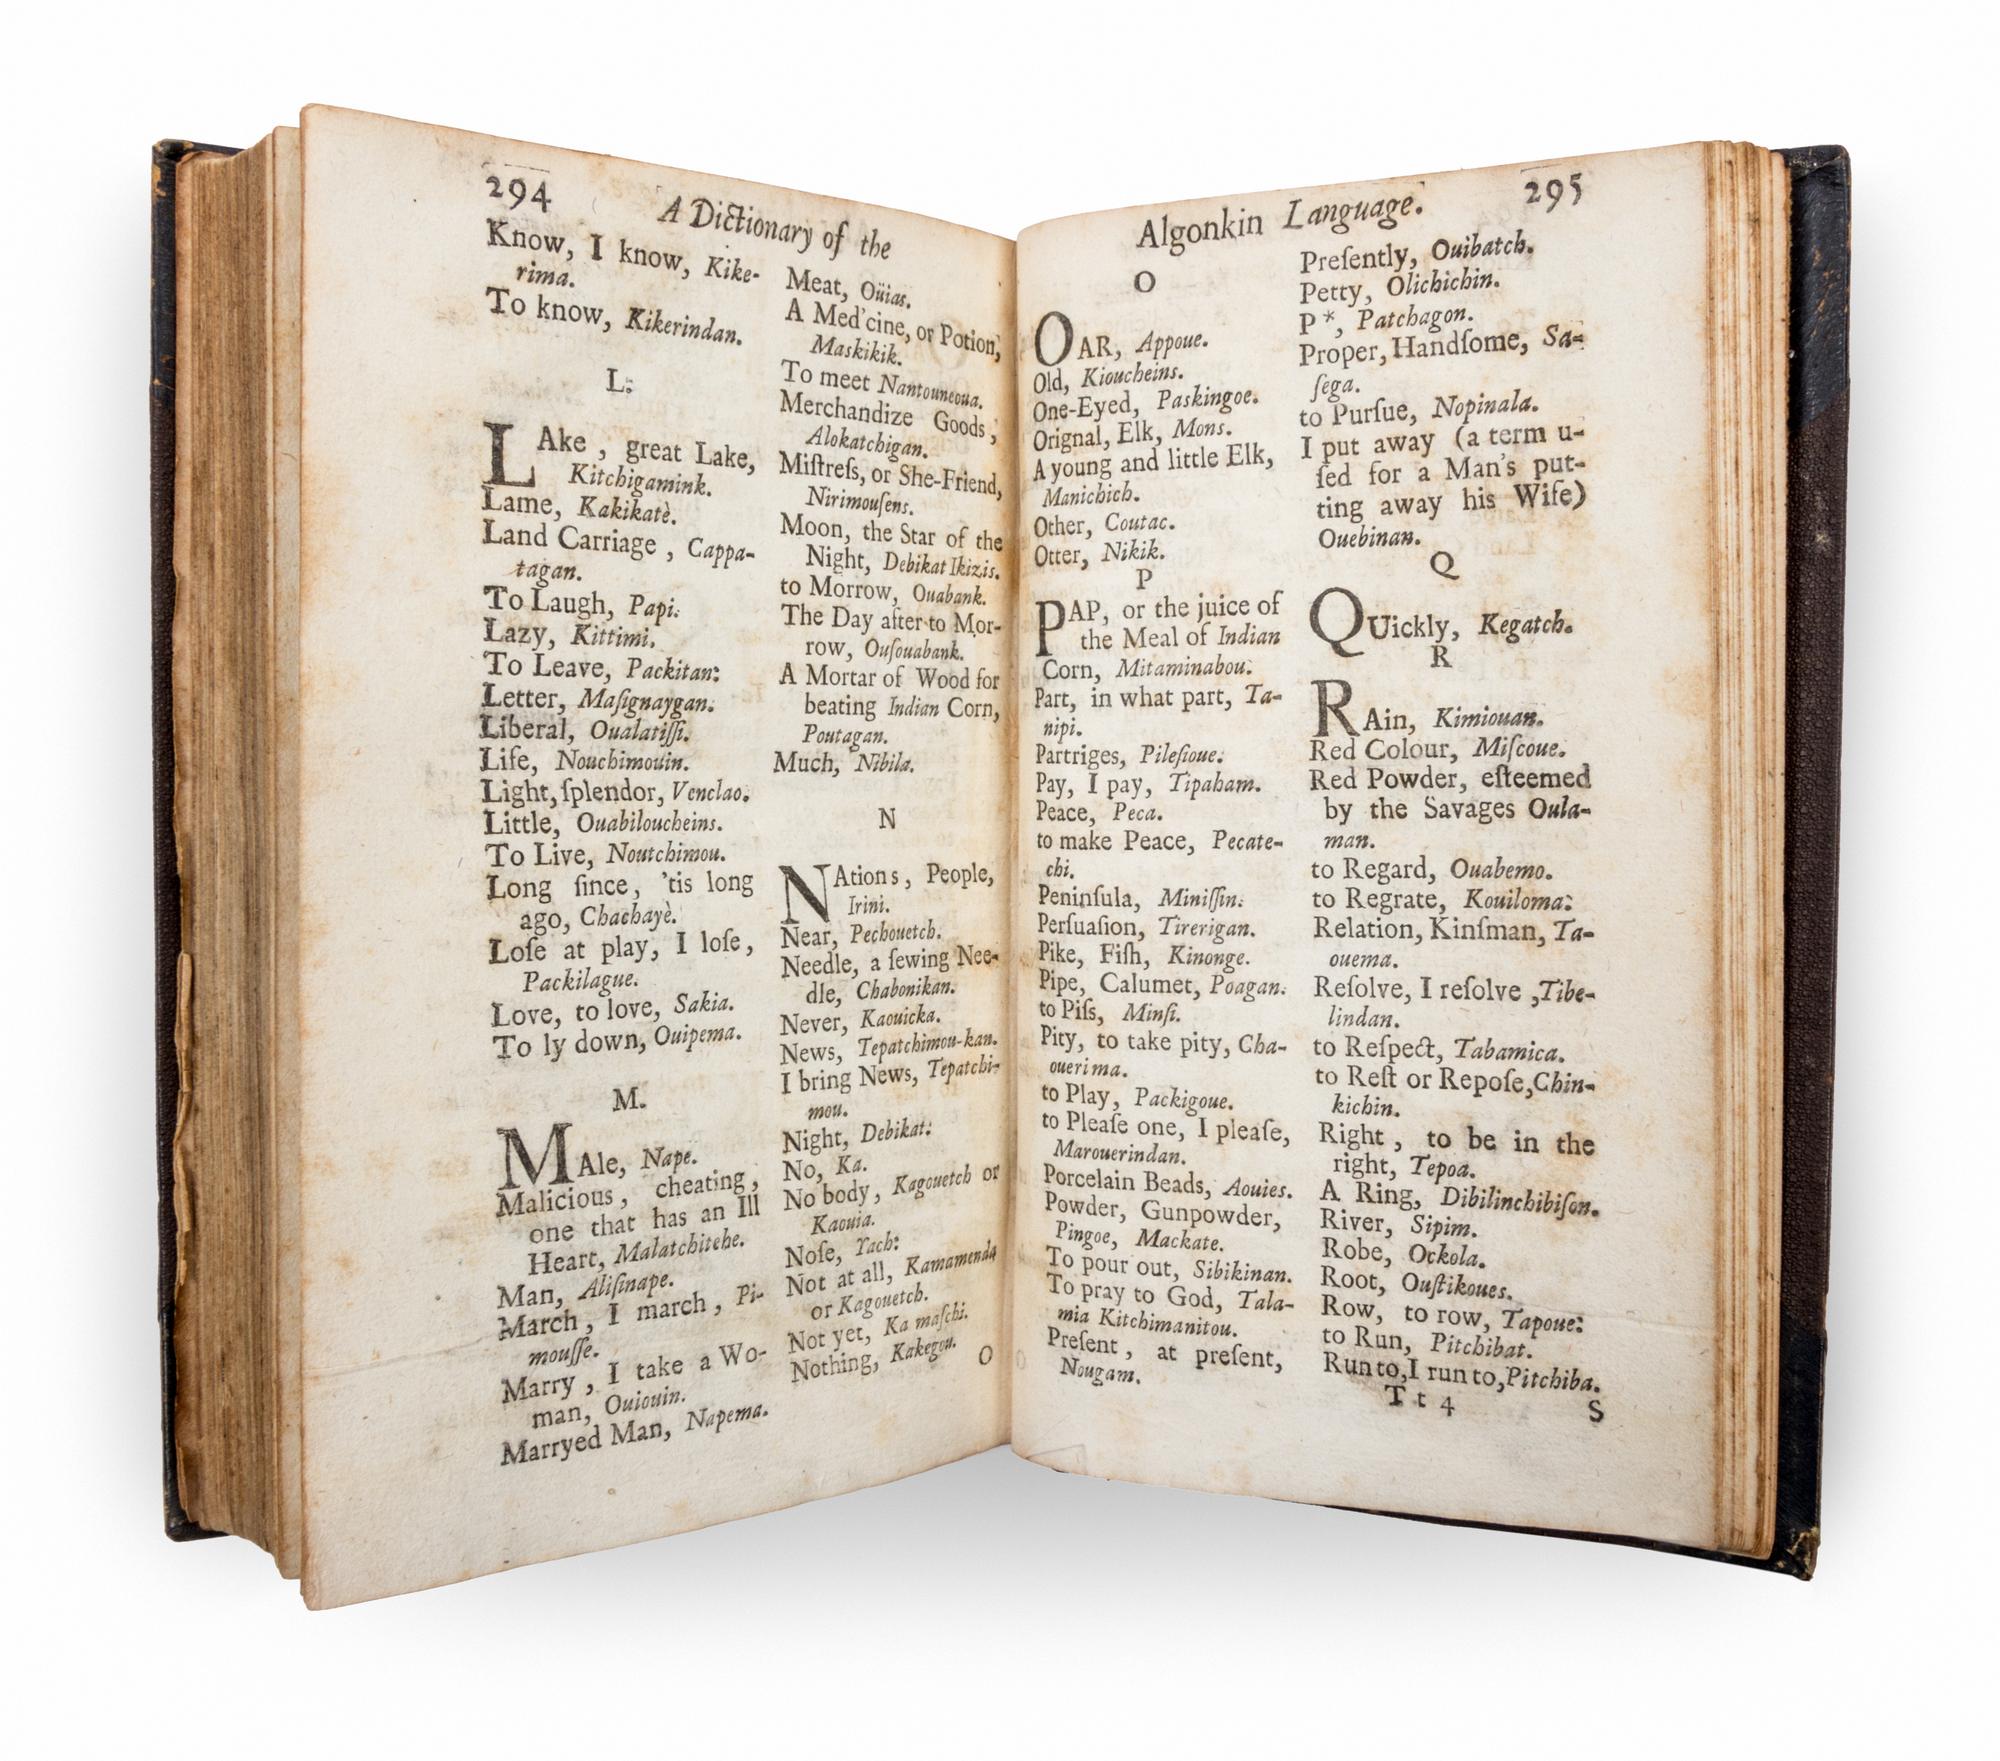 294
A Dictionary of the
Know, I know, Kike-
rima.
To know, Kikerindan.
L.
LAke, great Lake,
Kitchigamink.
Lame, Kakikatè.
Land Carriage, Cappa-
tagan.
To Laugh, Papi.
Lazy, Kittimi.
To Leave, Packitan:
Letter, Maſignaygan.
Liberal, Oualatiſſi.
Life, Nouchimouin.
Light, ſplendor, Venclao.
Little, Ouabiloucheins.
To Live, Noutchimou.
Long ſince, 'tis long
ago, Chachayè.
Loſe at play, I loſe,
Packilague.
Love, to love, Sakia.
To ly down, Ouipema.
M.
MAle, Nape.
Malicious, cheating,
one that has an Ill
Heart, Malatchitehe.
Man, Aliſinape.
March, I march, Pi-
mouſſe.
Marry, I take a Wo-
man, Ouiouin.
Marryed Man, Napema.
Meat, Oüias.
A Med'cine, or Potion,
Maskikik.
To meet Nantouneoua.
Merchandize Goods,
Alokatchigan.
Miſtreſs, or She-Friend,
Nirimouſens.
Moon, the Star of the
Night, Debikat Ikizis.
to Morrow, Ouabank.
The Day after to Mor-
row, Ouſouabank.
A Mortar of Wood for
beating Indian Corn,
Poutagan.
Much, Nibila.
N
NAtions, People,
Irini.
Near, Pechouetch.
Needle, a ſewing Nee-
dle, Chabonikan.
Never, Kaouicka.
News, Tepatchimou-kan.
I bring News, Tepatchi-
mou.
Night, Debikat:
No, Ka.
No body, Kagouetch or
Kaouia.
Noſe, Yach:
Not at all, Kamamenda
or Kagouetch.
Not yet, Ka maſchi.
Nothing, Kakegou.
O
Algonkin Language.
295
O
OAR, Appoue.
Old, Kioucheins.
One-Eyed, Paskingoe.
Orignal, Elk, Mons.
A young and little Elk,
Manichich.
Other, Coutac.
Otter, Nikik.
P
PAP, or the juice of
the Meal of Indian
Corn, Mitaminabou.
Part, in what part, Ta-
nipi.
Partriges, Pileſioue.
Pay, I pay, Tipaham.
Peace, Peca.
to make Peace, Pecate-
chi.
Peninſula, Miniſſin.
Perſuaſion, Tirerigan.
Pike, Fiſh, Kinonge.
Pipe, Calumet, Poagan.
to Piſs, Minſi.
Pity, to take pity, Cha-
ouerima.
to Play, Packigoue.
to Pleaſe one, I pleaſe,
Marouerindan.
Porcelain Beads, Aouies.
Powder, Gunpowder,
Pingoe, Mackate.
To pour out, Sibikinan.
To pray to God, Tala-
mia Kitchimanitou.
Preſent, at preſent,
Nougam.
Preſently, Ouibatch.
Petty, Olichichin.
P*, Patchagon.
Proper, Handſome, Sa-
ſega.
to Purſue, Nopinala.
I put away (a term u-
ſed for a Man's put-
ting away his Wife)
Ouebinan.
Q
QUickly, Kegatch.
R
RAin, Kimiouan.
Red Colour, Miſcoue.
Red Powder, eſteemed
by the Savages Oula-
man.
to Regard, Ouabemo.
to Regrate, Kouiloma:
Relation, Kinſman, Ta-
ouema.
Reſolve, I reſolve, Tibe-
lindan.
to Reſpect, Tabamica.
to Reſt or Repoſe, Chin-
kichin.
Right, to be in the
right, Tepoa.
A Ring, Dibilinchibiſon.
River, Sipim.
Robe, Ockola.
Root, Ouſtikoues.
Row, to row, Tapoue:
to Run, Pitchibat.
Run to, I run to, Pitchiba.
Tt 4
S